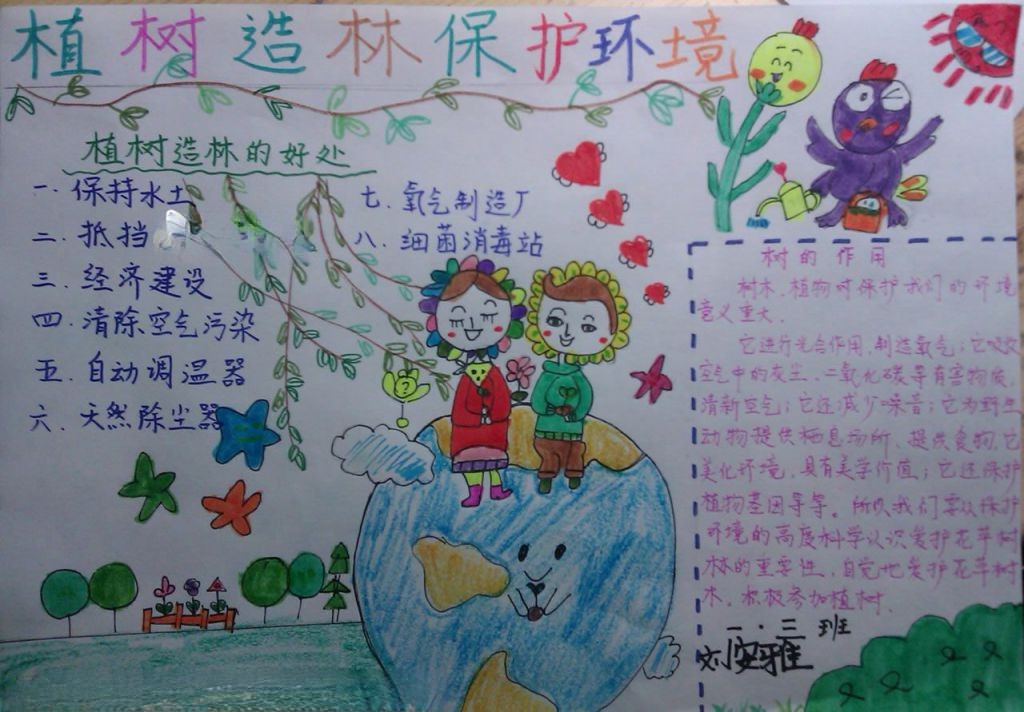 植树造林保护环境
植树造林的好处
一.保持水土
二.抵挡
三.经济建设
四.清除空气污染
五.自动调温器
六.天然除尘器
七.氧气制造厂
八.细菌消毒站
树的作用
树木、植物对保护我们的环境
意义重大.
它进行光合作用,制造氧气;它吸收
空气中的灰尘、二氧化碳等有害物质,
清新空气;它还减少噪音;它为野生
动物提供栖息场所、提供食物,它
美化环境,具有美学价值;它还保护
植物基因等等。所以我们要以保护
环境的高度科学认识爱护花草树
木的重要性,自觉地爱护花草树
木,积极参加植树.
一.二班
刘安雅